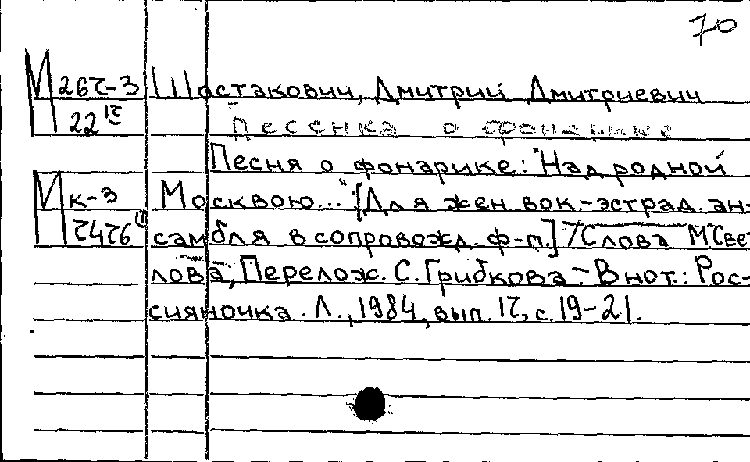 70
М 262-3 Шостакович, Дмитрий Дмитриевич
22 Песенка о фонарике
Песня о фонарике: "Над родной
М к-3 Москвою..." [Для жен вок-эстрад. ан-
2426 самбля в сопровожд. ф-п.] /Слова М Свет
лова, Перелож. С. Грибкова - В нот.: Рос-
сияночка. Л., 1984, вып. 12, с. 19-21.